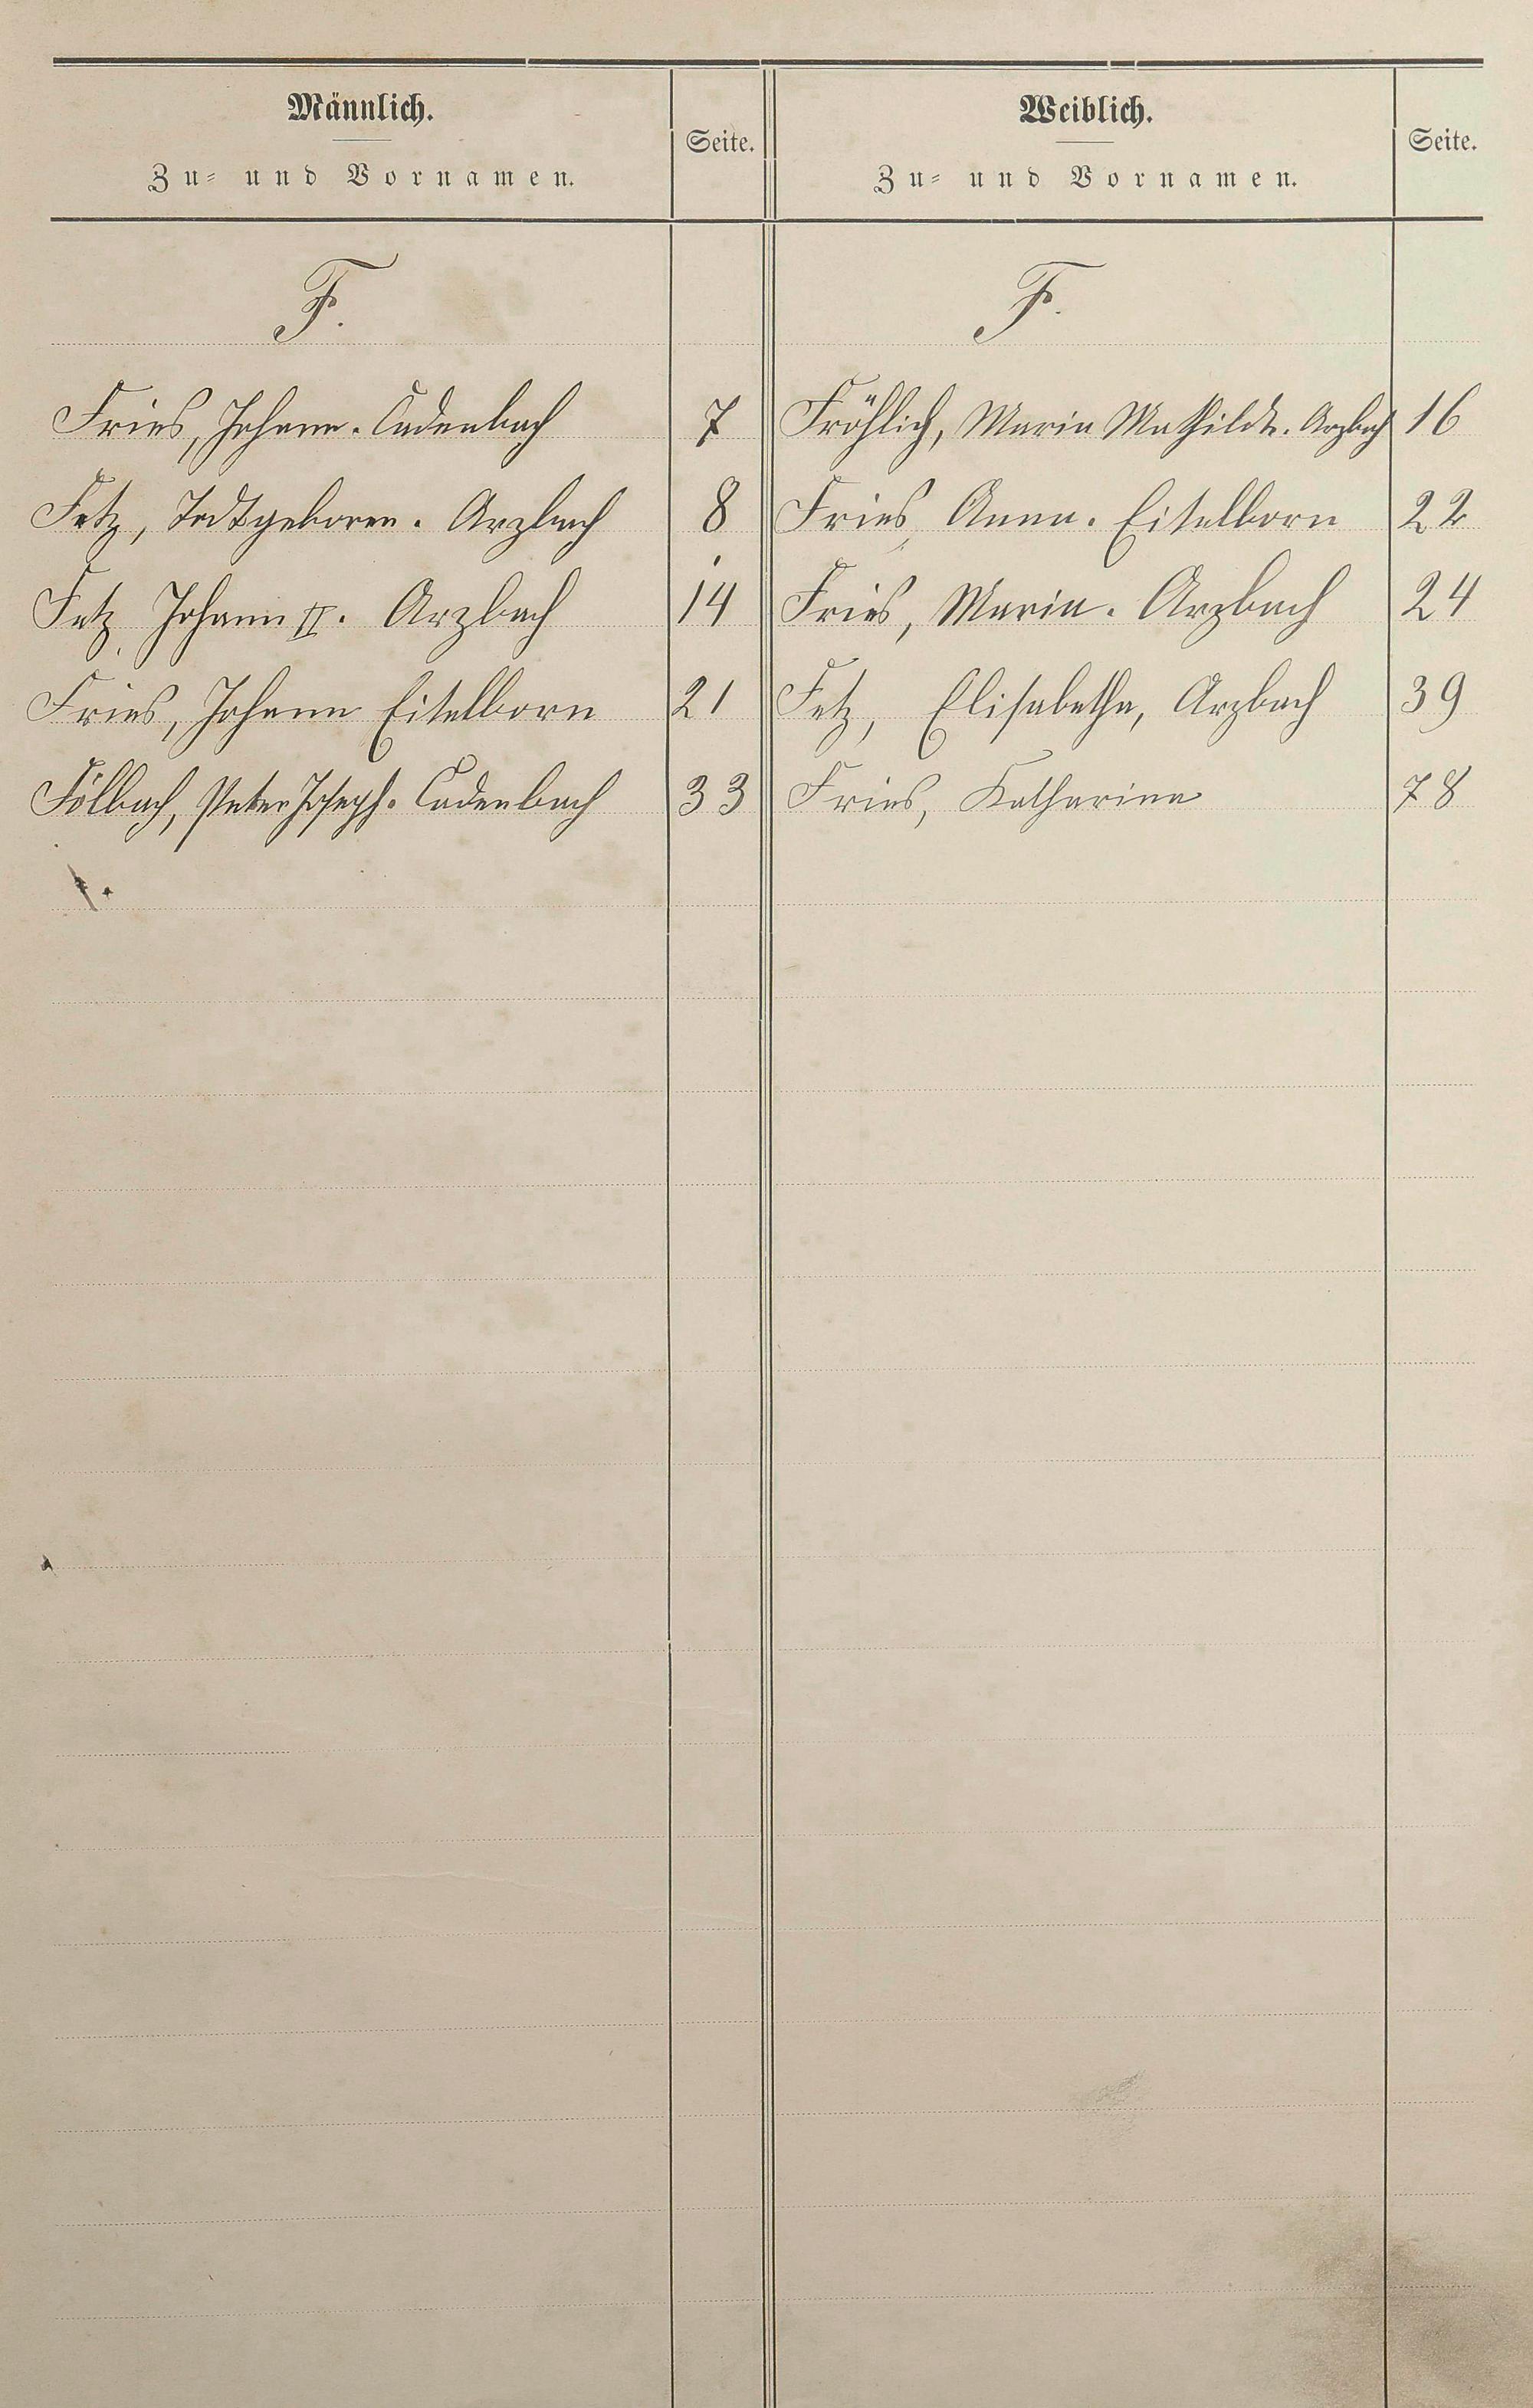 Männlich.
Zu- und Vornamen.
Seite.
Weiblich.
Zu- und Vornamen.
Seite.
F.
Fries, Johann. Cadenbach 7
Fetz, Todtgeboren. Arzbach 8
Fetz, Johann II. Arzbach 14
Fries, Johann Eitelborn 21
Fölbach, Peter Joseph. Cadenbach 33
F.
Fröhlich, Maria Mathilde. Arzbach 16
Fries, Anna. Eitelborn 22
Fries, Maria. Arzbach 24
Fetz, Elisabetha, Arzbach 39
Fries, Katharina 78